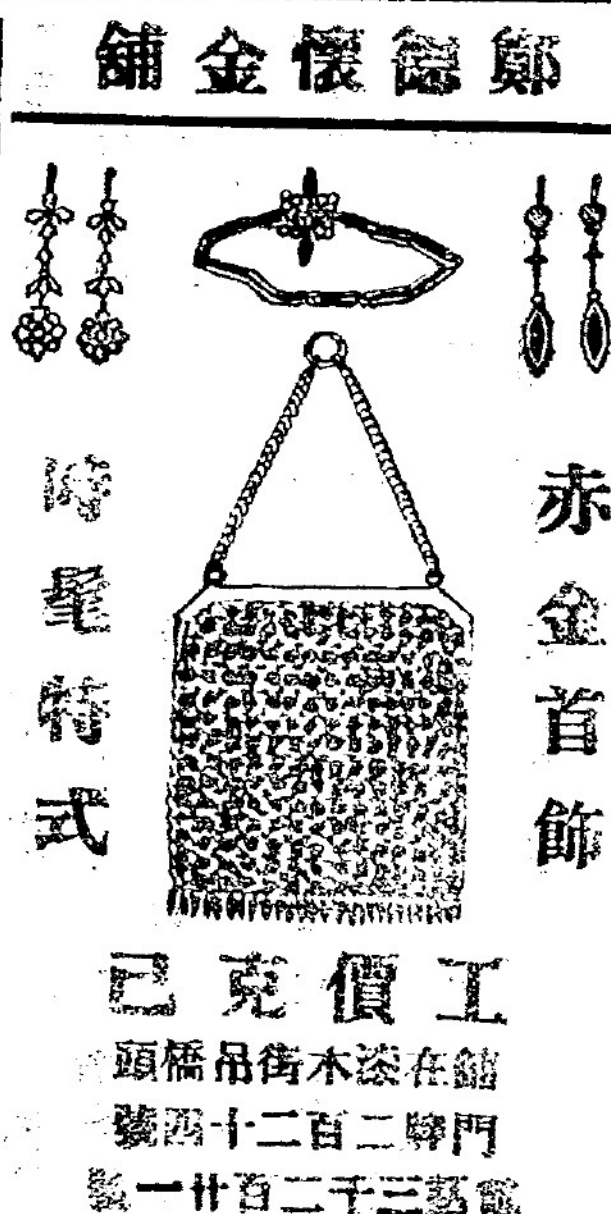 鄭德懷金舖
赤金首飾
時髦特式
工價克己
舖在漆木街吊橋頭
門牌二百二十四號
電話三千二百廿一號